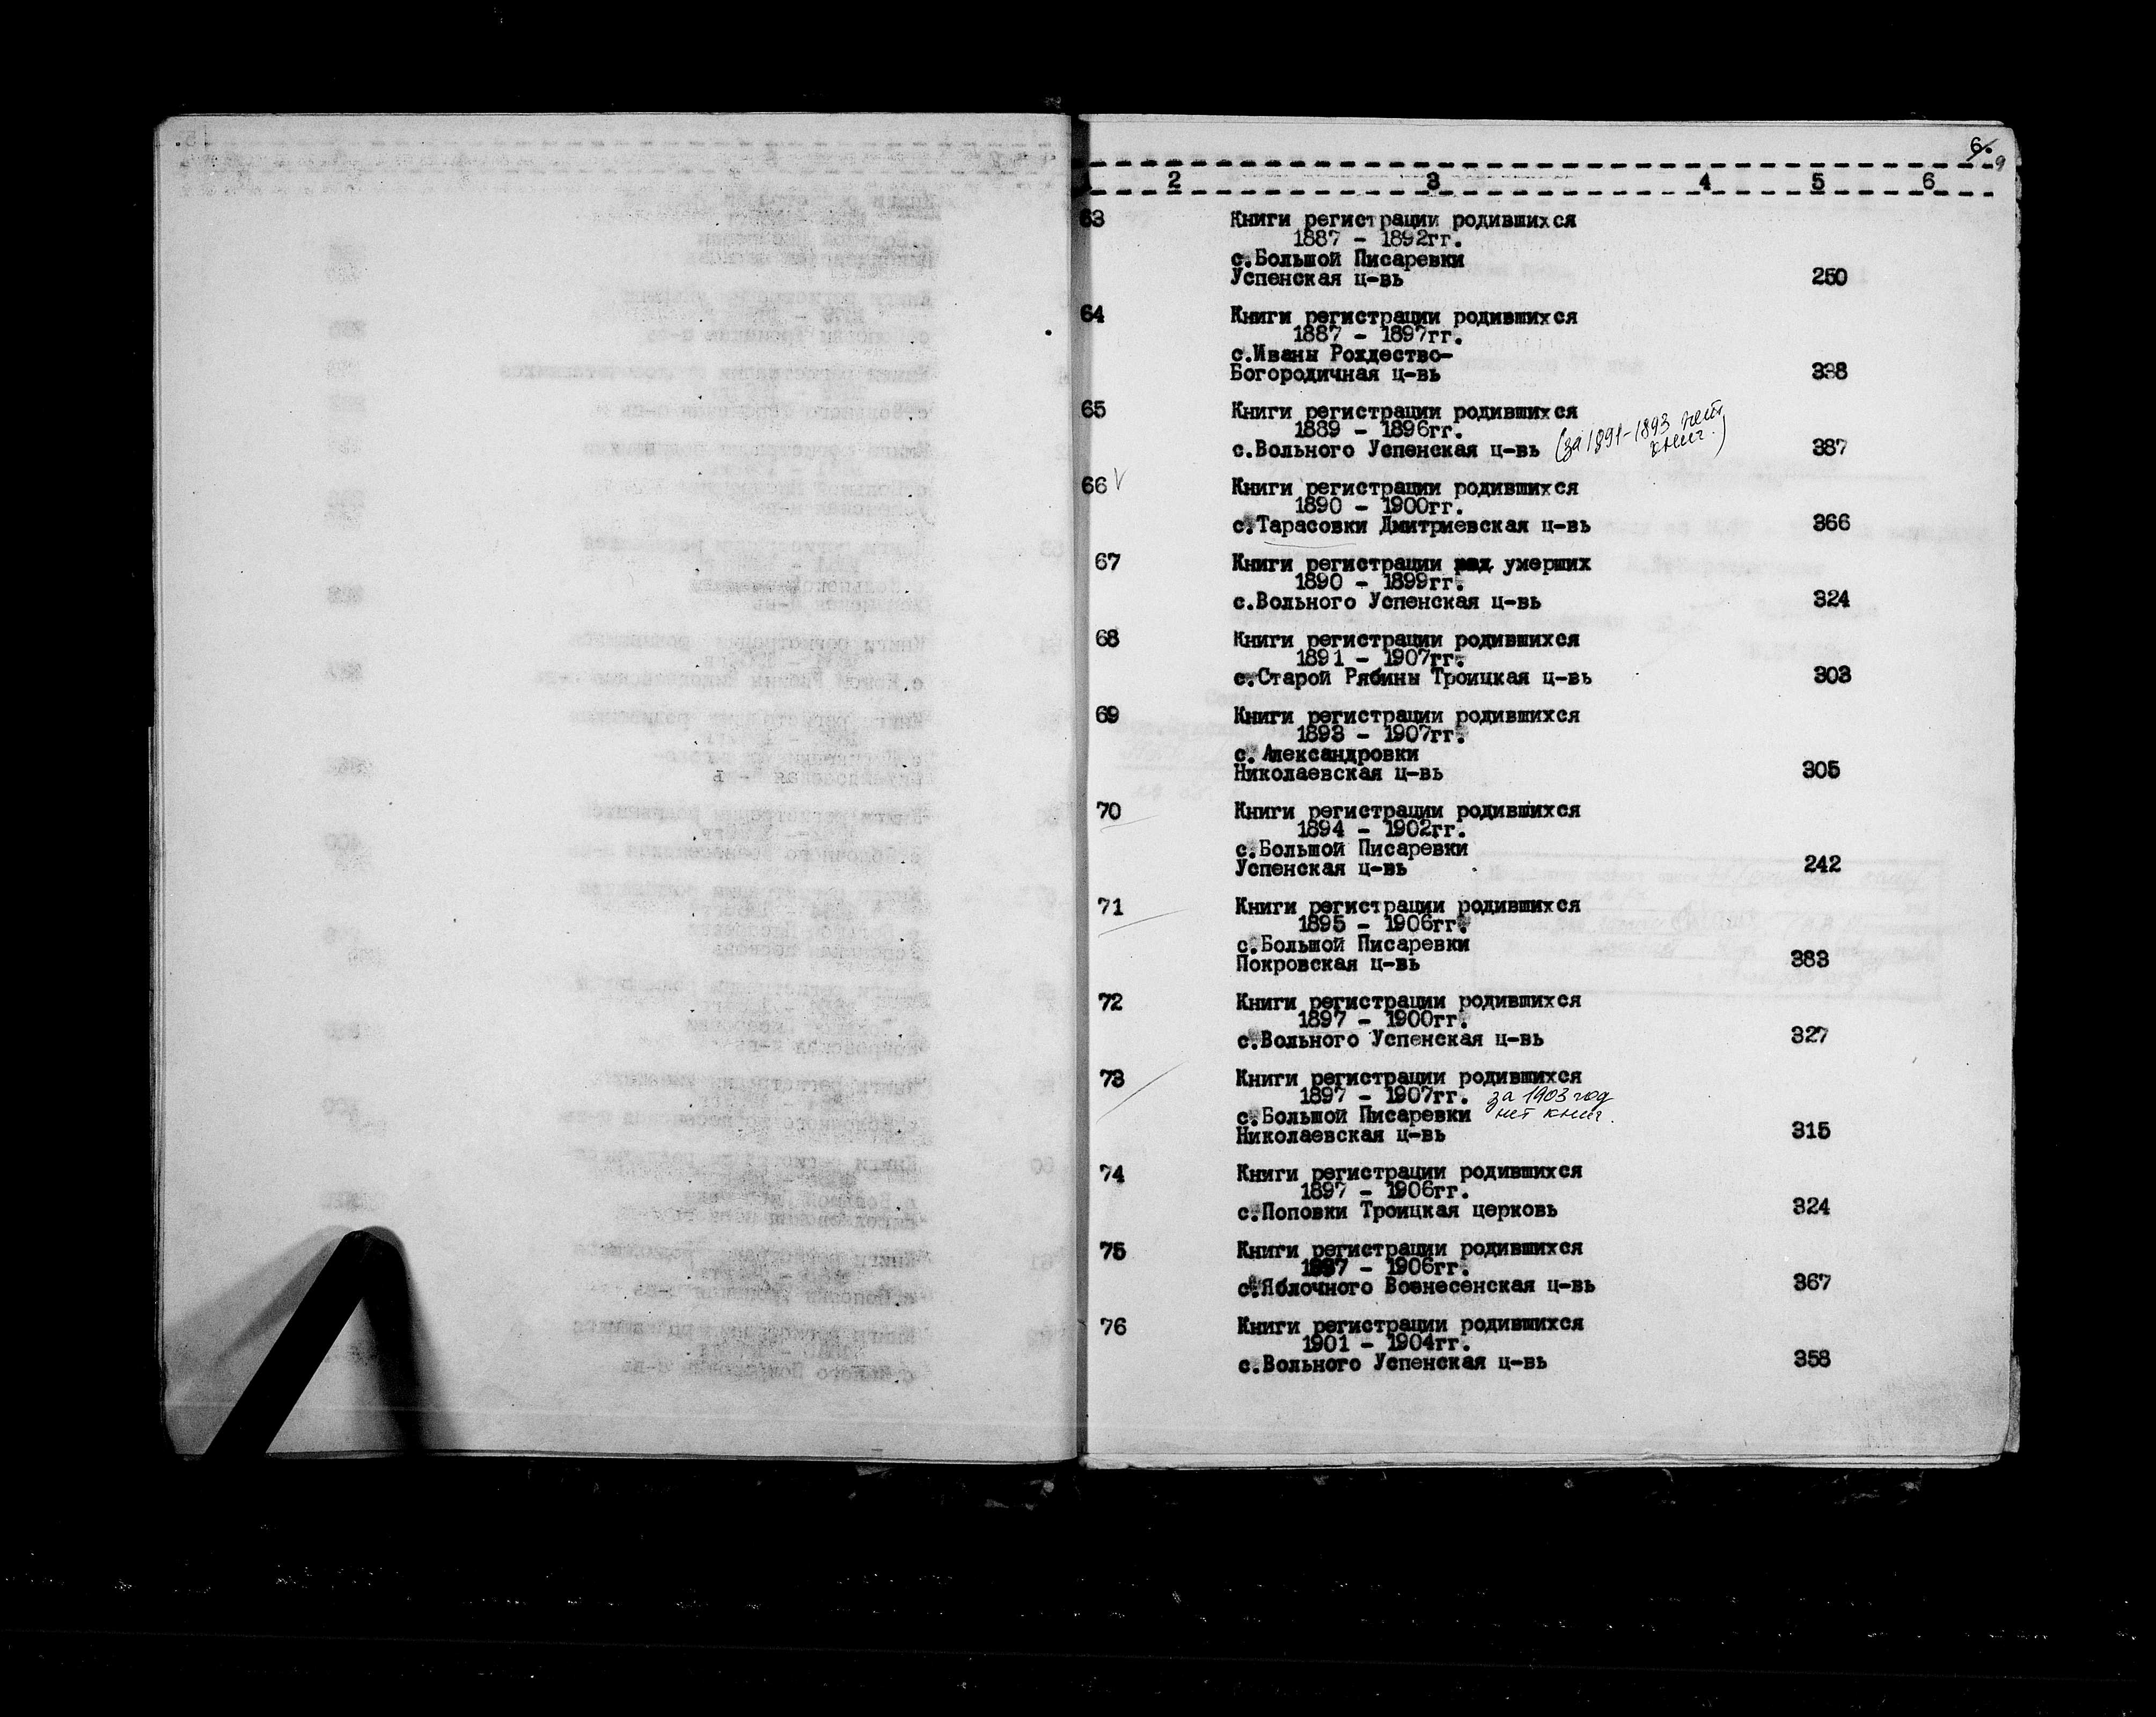 6.
9
2 3 4 5 6
63 Книги регистрации родившихся
1887 - 1892гг.
с.Большой Писаревки
Успенская ц-вь 250
64 Книги регистрации родившихся
1887 - 1897гг.
с.Иваны Рождество-
Богородичная ц-вь 338
65 Книги регистрации родившихся
1889 - 1896гг.
с.Вольного Успенская ц-вь (за 1891-1893 нет 387
книг.)
66 Книги регистрации родившихся
1890 - 1900гг.
с.Тарасовки Дмитриевская ц-вь 366
67 Книги регистрации умерших
1890 - 1899гг.
с.Вольного Успенская ц-вь 324
68 Книги регистрации родившихся
1891 - 1907гг.
с.Старой Рябины Троицкая ц-вь 303
69 Книги регистрации родившихся
1893 - 1907гг.
с.Александровки
Николаевская ц-вь 305
70 Книги регистрации родившихся
1894 - 1902гг.
с.Большой Писаревки
Успенская ц-вь 242
71 Книги регистрации родившихся
1895 - 1906гг.
с.Большой Писаревки
Покровская ц-вь 383
72 Книги регистрации родившихся
1897 - 1900гг.
с.Вольного Успенская ц-вь 327
73 Книги регистрации родившихся
1897 - 1907гг. за 1903 год
с.Большой Писаревки нет книг.
Николаевская ц-вь 315
74 Книги регистрации родившихся
1897 - 1906гг.
с.Поповки Троицкая церковь 324
75 Книги регистрации родившихся
1897 - 1906гг.
с.Яблочного Вознесенская ц-вь 367
76 Книги регистрации родившихся
1901 - 1904гг.
с.Вольного Успенская ц-вь 358